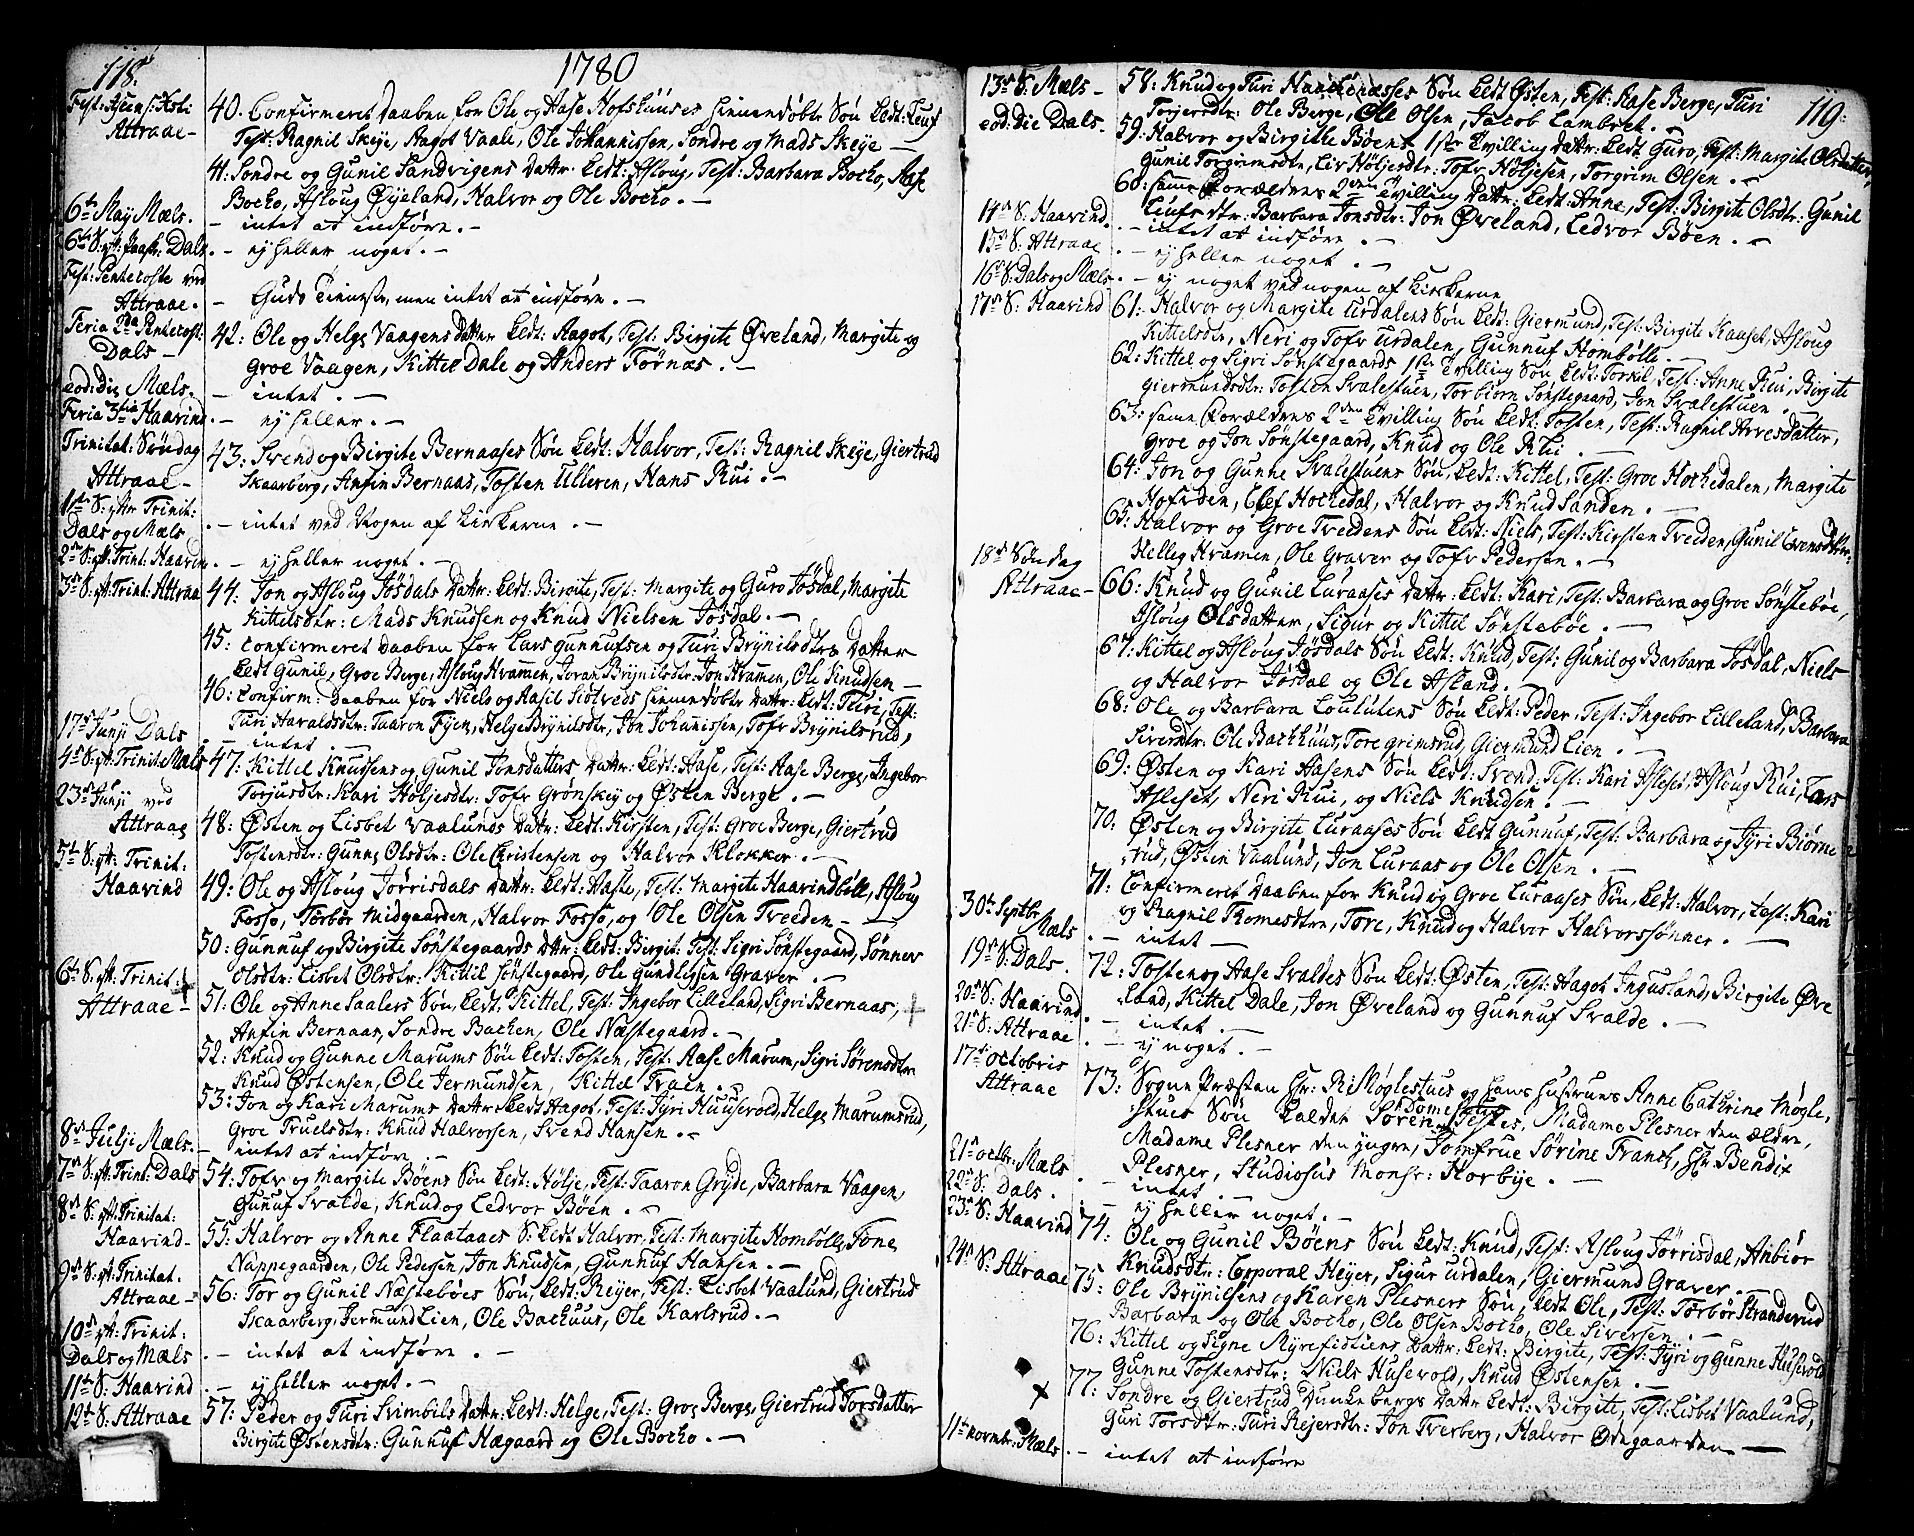 118.
1780
Fest: Ascens: Xsti
Attraae —
40. Confirmeret Daaben for Ole og Aase Hofskuuses hiemmedøbte Søn kaldt: Leuf
Test: Ragnil Skeje, Aagot Vaale, Ole Johannissen, Sondre og Mads Skeje —
41. Sondre og Gunil Sandvigens Datter: kaldt: Asloug, Test: Barbara Bocko, Aase
Bocko, Asloug Øyeland, Halvor og Ole Bocko. —
6te May Mæls. — intet at indføre. —
6te S. p. Pasch. Dals. — ej heller noget. —
Fest: Pentecoste ved
Attraae. — Guds Tieneste, men intet at indføre. —
Feria 2da Pentecost:
Dals —
42: Ole og Helge Vaagens Datter kaldt: Aagot, Test: Birgite Øveland, Margite og
Groe Vaagen, Kittel Dale og Anders Førnæs. —
eod: Die Mæls. — intet. —
Feria 3tia Haavind. — ej heller. —
Trinitat: Søndag
Attraae —
43: Svend og Birgite Bernaases Søn kaldt: Halvor, Test: Ragnil Skeje, Giertrud
Skaarberg, Anfin Bernaas, Tosten Ulleren, Hans Rui. —
1ste S. p. Trinit:
Dals og Mæls . — intet ved Nogen af kirkerne. —
2den S. p. Trin: Haavin. — ej heller noget. —
3die S. p. Trinit: Attraa
44: Jon og Asloug Jøsdals Datter: kaldt: Birgite, Test: Margite og Guro Jøsdal, Margite
Kittelsdtr: Mads Knudsen og Knud Nielsen Jøsdal. —
45: Confirmeret Daaben for Lars Gunnufsen og Turi Brynilsdtrs Datter
kaldt Gunil, Groe Berge, Asloug Kramen, Joran Brynilsdtr: Jon Kramen, Ole Knudsen —
46: Confirm: Daaben for Niels og Aasil Siøtveds hiemmedøbte Datter: kaldt: Turi, Test:
Turi Haraldsdtr: Taaron Fyen, Helge Brynilsdtr, Jon Johannissen, Tofr Brynilsrud,
17de Junji Dals . — intet . —
4de S. p. Trinit: Mæls
23de Junji ved
Attraae
47: Kittel Knudsens og Gunil Jonsdatters Datter: kaldt: Aase, Test: Aase Berge, Ingebor
Torjusdtr: Kari Holjesdtr: Tofr Grønskej og Østen Berge . —
48: Østen og Lisbet Vaalunds Datter: kaldt: Kirsten, Test: Groe Berge, Giertrud
Tostensdtr: Gunne Olsdtr: Ole Christensen og Halvor Klokker. —
5te S. p. Trinit:
Haavind
49: Ole og Asloug Jørrisdals Datter: kaldt: Aaste, Test: Margite Haavindbølle, Asloug
Fosso, Tørbør Midgaarden, Halvor Fosso, og Ole Olsen Treeden —
50: Gunnuf og Birgite Sønstegaards Datter: kaldt: Birgit: Test: Sigri Sønstegaard, Sønnev
Olsdtr: Lisbet Olsdtr: Kittil Sønstegaard, Ole Gundleysen Graver . —
6te S. p. Trinit:
Attraae —
51: Ole og Anne Saalers Søn, kaldt: Kittel, Test: Ingebor Lilleland, Sigri Bernaas,
Anfin Bernaas, Sondre Backen, Ole Næstegaard. —
52: Knud og Gunne Marums Søn kaldt: Tosten, Test: Aase Marum, Sigri Sørensdtr
Knud Østensen, Ole Jermundsen, Kittel Traen . —
53: Jon og Kari Marums Datter kaldt Aagot, Test: Jyri Huusevold, Helge Marumsrud,
Groe Truelsdtr: Knud Halvorsen, Svend Hansen. —
8de Julji Mæls. — intet at indføre . —
7de S. p. Trin: Dals
54: Tofr og Margite Bøens Søn kaldt: Hølje, Test: Taaron Gryde, Barbara Vaagen,
Gunuf Svalde, Knud og Ledvor Bøen . —
8de S: p. Trinitat:
Haavind —
55: Halvor og Anne Flaataaes S: kaldt Halvor, Test: Margite Hombølle, Tone
Nappegaarden, Ole Pedersen, Jon Knudsen, Gunnuf Hansen. —
9de S: p. Trinitat.
Attraae —
56: Tor og Gunil Næstebøes Søn, kaldt: Rejer, Test: Lisbet Vaalund, Giertrud
Skaarberg, Jermund Lien, Ole Backuus, Ole Karlsrud. —
10de p. Trinit:
Dals og Mæls . — intet at indføre . —
11te S: Haavind . — ej heller noget. —
12te S. Attraae
57: Peder og Turi Svimbils Datter: kaldt: Helge, Test: Groe Berge, Giertrud Torsdatter
Birgite Østensdtr: Gunnuf Hægaard og Ole Bocko. —
119:
13de S. Mæls —
eod: Die Dals.
58: Knud og Turi Søn kaldt Østen, Test: Aase Berge, Turi
Torgersdtr: Ole Berge, Ole Olsen, Jacob Lambret. —
59: Halvor og Birgithe Bøens 1ste Tvilling Datter: kaldt Guro, Test: Margite Olsdatter,
Gunil Torgrimsdtr, Liv Høljesdtr: Tofr Høljesen, Torgrim Olsen . —
60: samme Forældres 2den Tvilling Datter: kaldt: Anne, Test: Birgite Olsdtr: Gunil
Leufsdtr: Barbara Jonsdtr: Jon Øveland, Ledvor Bøen. —
14de S: Haavind. — intet at indføre . —
15de S: Attraae . — ej heller noget. —
16de S: Dals og Mæls. — ej noget ved nogen af kirkerne
17de S: Haavind
61: Halvor og Margite Urdalens Søn kaldt: Giermund, Test: Birgite Kaaset, Asloug
Kittelsdtr, Neri og Tofr Urdalen, Gunnuf Hombølle. —
62: Kittel og Sigri Sønstegaards 1ste Tvilling Søn kaldt: Torkil, Test: Anne Rui, Birgite
Giermundsdtr: Tosten Svalestuen, Torbiørn Sønstegaard, Jon Svalestuen . —
63: samme Forældres 2den Tvilling Søn kaldt: Tosten, Test: Ragnil Arvesdatter,
Groe og Jon Sønstegaard, Knud og Ole Rui . —
64: Jon og Gunne Svalestuens Søn, kaldt: Kittel, Test: Groe Hockedalen, Margite
Hofseden, Olef Hockedal, Halvor og Knud Sanden. —
65: Halvor og Groe Treedens Søn kaldt: Niels, Test: Kirsten Treeden, Gunil Evensdatter
Helleg Kramen, Ole Graver og Tofr Pedersen. —
18de Søndag
Attraae —
66: Knud og Gunil Luraases Datter: kaldt: Kari, Test: Barbara og Groe Sønstebøe,
Asloug Olsdatter, Sigur og Kittel Sønstebøe . —
67: Kittel og Asloug Jøsdals Søn kaldt: Knud, Test: Gunil og Barbara Jøsdal, Niels
og Halvor Jøsdal og Ole Asland. —
68: Ole og Barbara Loulutens Søn kaldt: Peder, Test: Ingebor Lilleland, Barbara
Siversdtr: Ole Backhuus, Tore Grimsrud, Giermund Lien . —
69: Østen og Kari Aasens Søn kaldt: Svend: Test: Kari Asleset, Asloug Rui, Lars
Asleset, Neri Rui, og Niels Knudsen. —
70: Østen og Birgite Luraases Søn kaldt Gunnuf, Test: Barbara og Jyri Biørne
rud, Østen Vaalund, Jon Luraas og Ole Olsen . —
71: Confirmeret Daaben for Knud og Groe Luraases Søn, kaldt: Halvor, Test: Kari
og Ragnil Thomesdtre, Tore, Knud og Halvor Halvorssønner . —
30te Septbr Mæls . — intet —
19de S. Dals .
72: Tosten og Aase Svaldes Søn kaldt: Østen, Test: Aagot Ingusland, Birgite Øve
land, Kittel Dale, Jon Øveland og Gunnuf Svalde . —
20de S: Haavind. — intet . —
21de S: Attraae . — ej noget . —
17de Octobris
Attraae
73: Sogne Præsten Hr: R: Møglestues og hans Hustrues Anne Cathrine Møgle,
stues Søn kaldet Søren, Testes, Madame Plesner den ældre,
Madame Plesner den yngre, Jomfrue Sørine Frantz, Hr: Bendix
Plesner, Studiosus Monsr: Horbye . —
21de Octbr: Mæls . — intet . —
22de S: Dals . — ej heller noget . —
23de S: Haavind
74: Ole og Gunil Bøens Søn kaldt: Knud, Test: Asloug Jørrisdal, Anbiør
Knudsdtr: Corporal Heyer, Sigur Urdalen, Giermund Graver. —
24de S. Attraae
75: Ole Brynilsens og Karen Plesners Søn, kaldt Ole, Test: Tørbør Stranderud
Barbara og Ole Bocko, Ole Olsen Bocko, Ole Siversen . —
76: Kittel og Signe Myrefidtiens Datter: kaldt: Birgite, Test: Jyri og Gunne Husevold
Gunne Tostensdtr: Niels Husevold, Knud Østensen . —
77: Sondre og Giertrud Dunkebergs Datter kaldt: Birgite, Test: Lisbet Vaalund,
Guri Torsdtr: Turi Rejersdtr: Jon Tverberg, Halvor Ødegaarden —
11te Novembr: Mæls . — intet at indføre